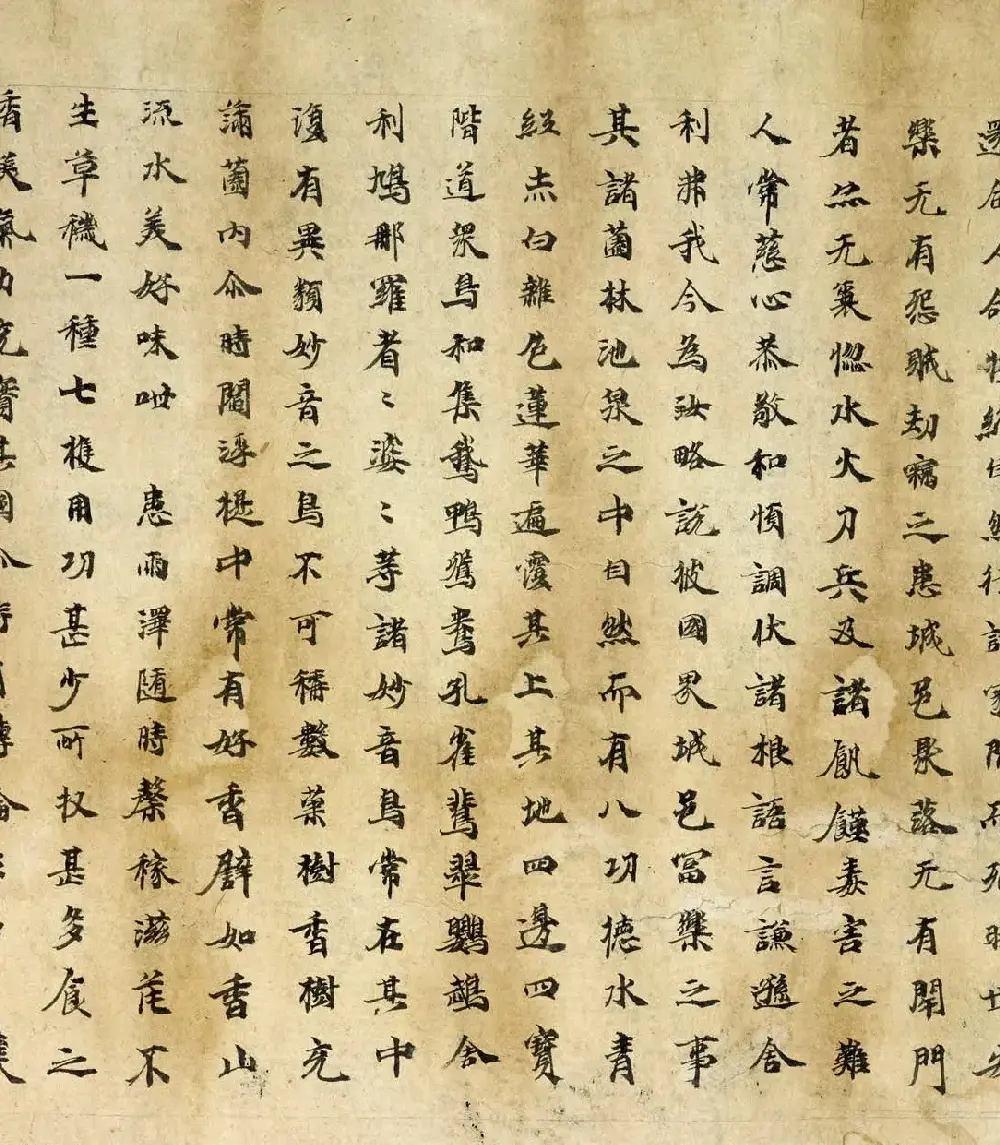 還合人命將終自然行詣冢間而死時世安
樂无有怨賊劫竊之患城邑聚落无有閇門
者亦无衰惱水火刀兵及諸飢饉毒害之難
人常慈心恭敬和順調伏諸根語言謙遜舍
利弗我今為汝略說彼國界城邑冨樂之事
其諸薗林池泉之中自然而有八功德水青
紅赤白雜色蓮華遍覆其上其地四邊四寶
階道衆鳥和集鵝鴨鴛鴦孔雀翡翠鸚鵡舍
利鳩那羅耆〻婆〻等諸妙音鳥常在其中
復有異類妙音之鳥不可稱數菓樹香樹充
滿薗內尒時閻浮提中常有好香譬如香山
流水美好味甘 患雨澤随時穀稼滋茂不
生草穢一種七穫用功甚少所收甚多食之
香美氣力充實其國尒時有轉輪